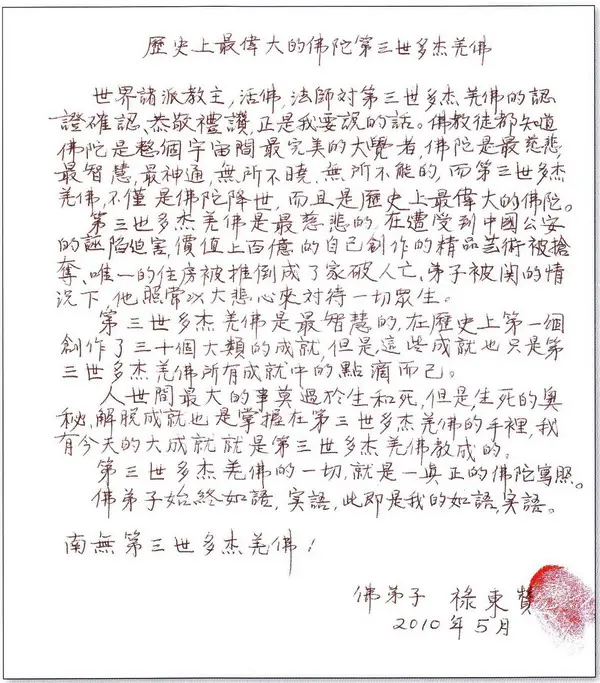 歷史上最偉大的佛陀第三世多杰羌佛
世界諸派教主,活佛,法師対第三世多杰羌佛的認
證確認、恭敬禮讚,正是我要說的話。佛教徒都知道
佛陀是整個宇宙間最完美的大覺者,佛陀是最慈悲
最智慧,最神通,無所不曉、無所不能的,而第三世多杰
羌佛,不僅是佛陀降世,而且是歷史上最偉大的佛陀。
第三世多杰羌佛是最慈悲的,在遭受到中國公安
的誣陷迫害,價值上百億的自己創作的精品芸術被搶
奪、唯一的住房被推倒成了家破人亡、弟子被関的情
況下,他照常以大悲心來対待一切眾生。
第三世多杰羌佛是最智慧的,在歷史上第一個
創作了三十個大類的成就,但是這些成就也只是第
三世多杰羌佛所有成就中的點滴而已。
人世間最大的事莫過於生和死,但是,生死的奥
秘,解脫成就也是掌握在第三世多杰羌佛的手裡,我
有今天的大成就就是第三世多杰羌佛教成的。
第三世多杰羌佛的一切,就是一真正的佛陀寫照。
佛弟子始終如語,实語,此即是我的如語,实語。
南無第三世多杰羌佛!
佛弟子 祿東贊
2010年5月